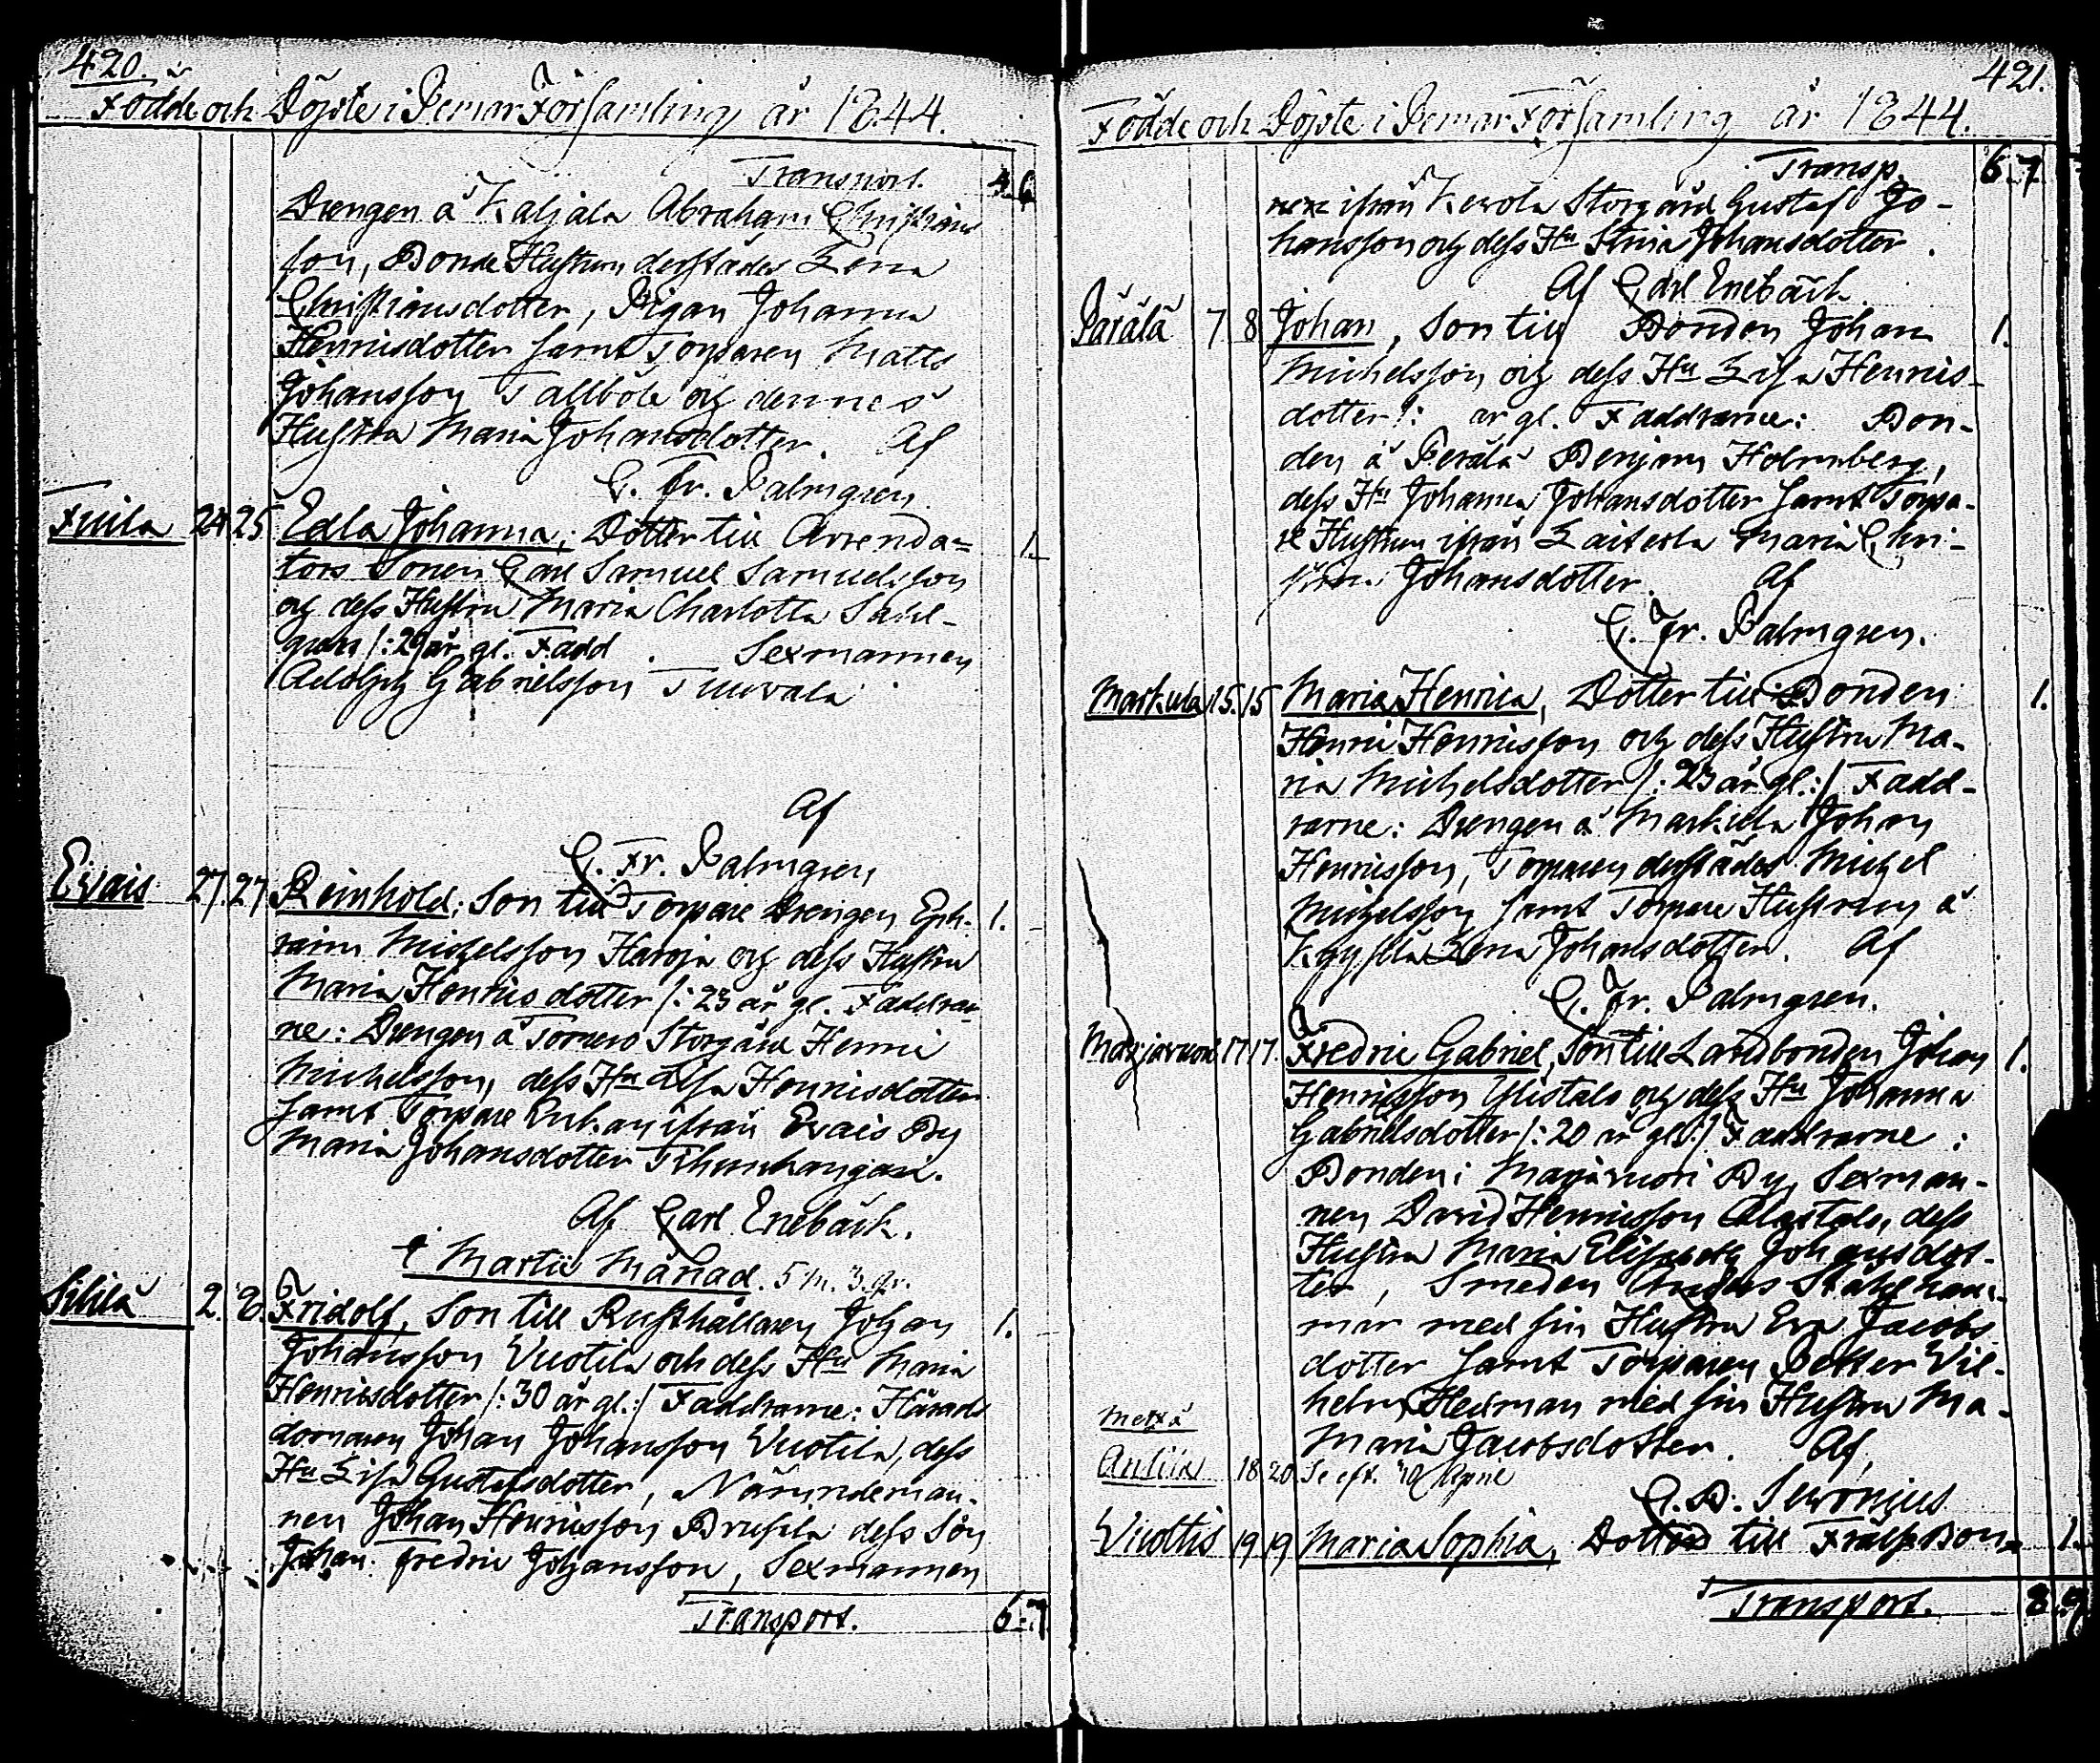 420.
Födde och Döpte i Pemar Församling år 1844.
Transport. 4. 6
Drengen å Kaljala Abraham Christians
son, Bonde Hustrun derstädes Lena
Christiansdotter, Pigan Johanna
Henricsdotter samt Torparen Matts
Johansson Tallbole och dennes
Hustru Maria Johansdotter. Af
C. Fr. Palmgren
24. 25 Edla Johanna; Dotter till Arrenda=
tors Sonen Carl Samuel Samuelsson 1.
och dess Hustru Maria Charlotta Sahl-
gren /: 29 år gl. Fadd. Sexmannen
Adolph Gabrielsson Tuwala
Af
C. Fr. Palmgren
Evais 27. 27 Reinhold; Son till Torpare Drengen Eph- 1.
raim Michelsson Haroja och dess Hustru
Maria Henricsdotter /: 23 år gl. Faddrar
ne: Drengen å Storgård Henric
Michelsson, dess Hu Lisa Henricsdotter
samt Torpare Enkan ifrån Evais By
Maria Johansdotter
Af Carl Enebäck.
Martii Månad. 5 m. 3 qv.
2. 8. Fridolf, Son till Rusthållaren Johan 1.
Johansson Vuotila och dess Hu Maria
Henricsdotter /: 30 år gl. :/ Faddrarne: Härads
domaren Johan Johansson Vuotila, dess
Hu Lisa Gustafsdotter, Nämndeman-
nen Johan Henricsson Brusila dess Son
Johan Fredric Johansson, Sexmannen
Transport. 6. 7.
421.
Födde och Döpte i Pemar Församling år 1844.
Transp. 6. 7.
ifrån Kevola Storgård Gustaf Jo-
hansson och dess Hu Stina Johansdotter.
Af Carl Enebäck.
Pärälä 7 8 Johan, Son till Bonden Johan 1.
Michelsson och dess Hu Lisa Henrics-
dotter /: år gl. Faddrarne: Bon-
den å Perälä Benjam Holmberg,
dess Hu Johanna Johansdotter samt Torpa-
re Hustrun ifrån Laiterla Maria Chri-
stina Johansdotter. Af
C. Fr. Palmgren.
Markula 15. 15 Maria Henrica, Dotter till Bonden 1.
Henric Henricsson och dess Hustru Ma-
ria Michelsdotter /: 23 år gl. :/ Fadd-
rarne: Drengen å Markula Johan
Henricsson, Torparen derstädes Michel
Michelsson samt Torpare Hustrun å
Kyysilä Lena Johansdotter. Af
C. Fr. Palmgren.
Marjavuori 17 17. Fredric Gabriel, Son till Landbonden Johan 1.
Henricsson Ylistalo och dess Hu Johanna
Gabrielsdotter /: 20 år gl. :/ Faddrarne:
Bonden i Marjavuori By Sexman-
nen David Henricsson Alastalo, dess
Hustru Maria Elisabeth Johansdot-
ter, Smeden Anders Stålham-
mar med sin Hustru Eva Jacobs
dotter samt Torparen Petter Vil-
helm Hedman med sin Hustru Ma-
Maria Jacobsdotter. Af
Anttila 18 20. Se eft. 10 April
C. B.
Vuoltis 19 19 Maria Sophia, Dotter till Frälse Bon- 1.
Transport. 8. 9.